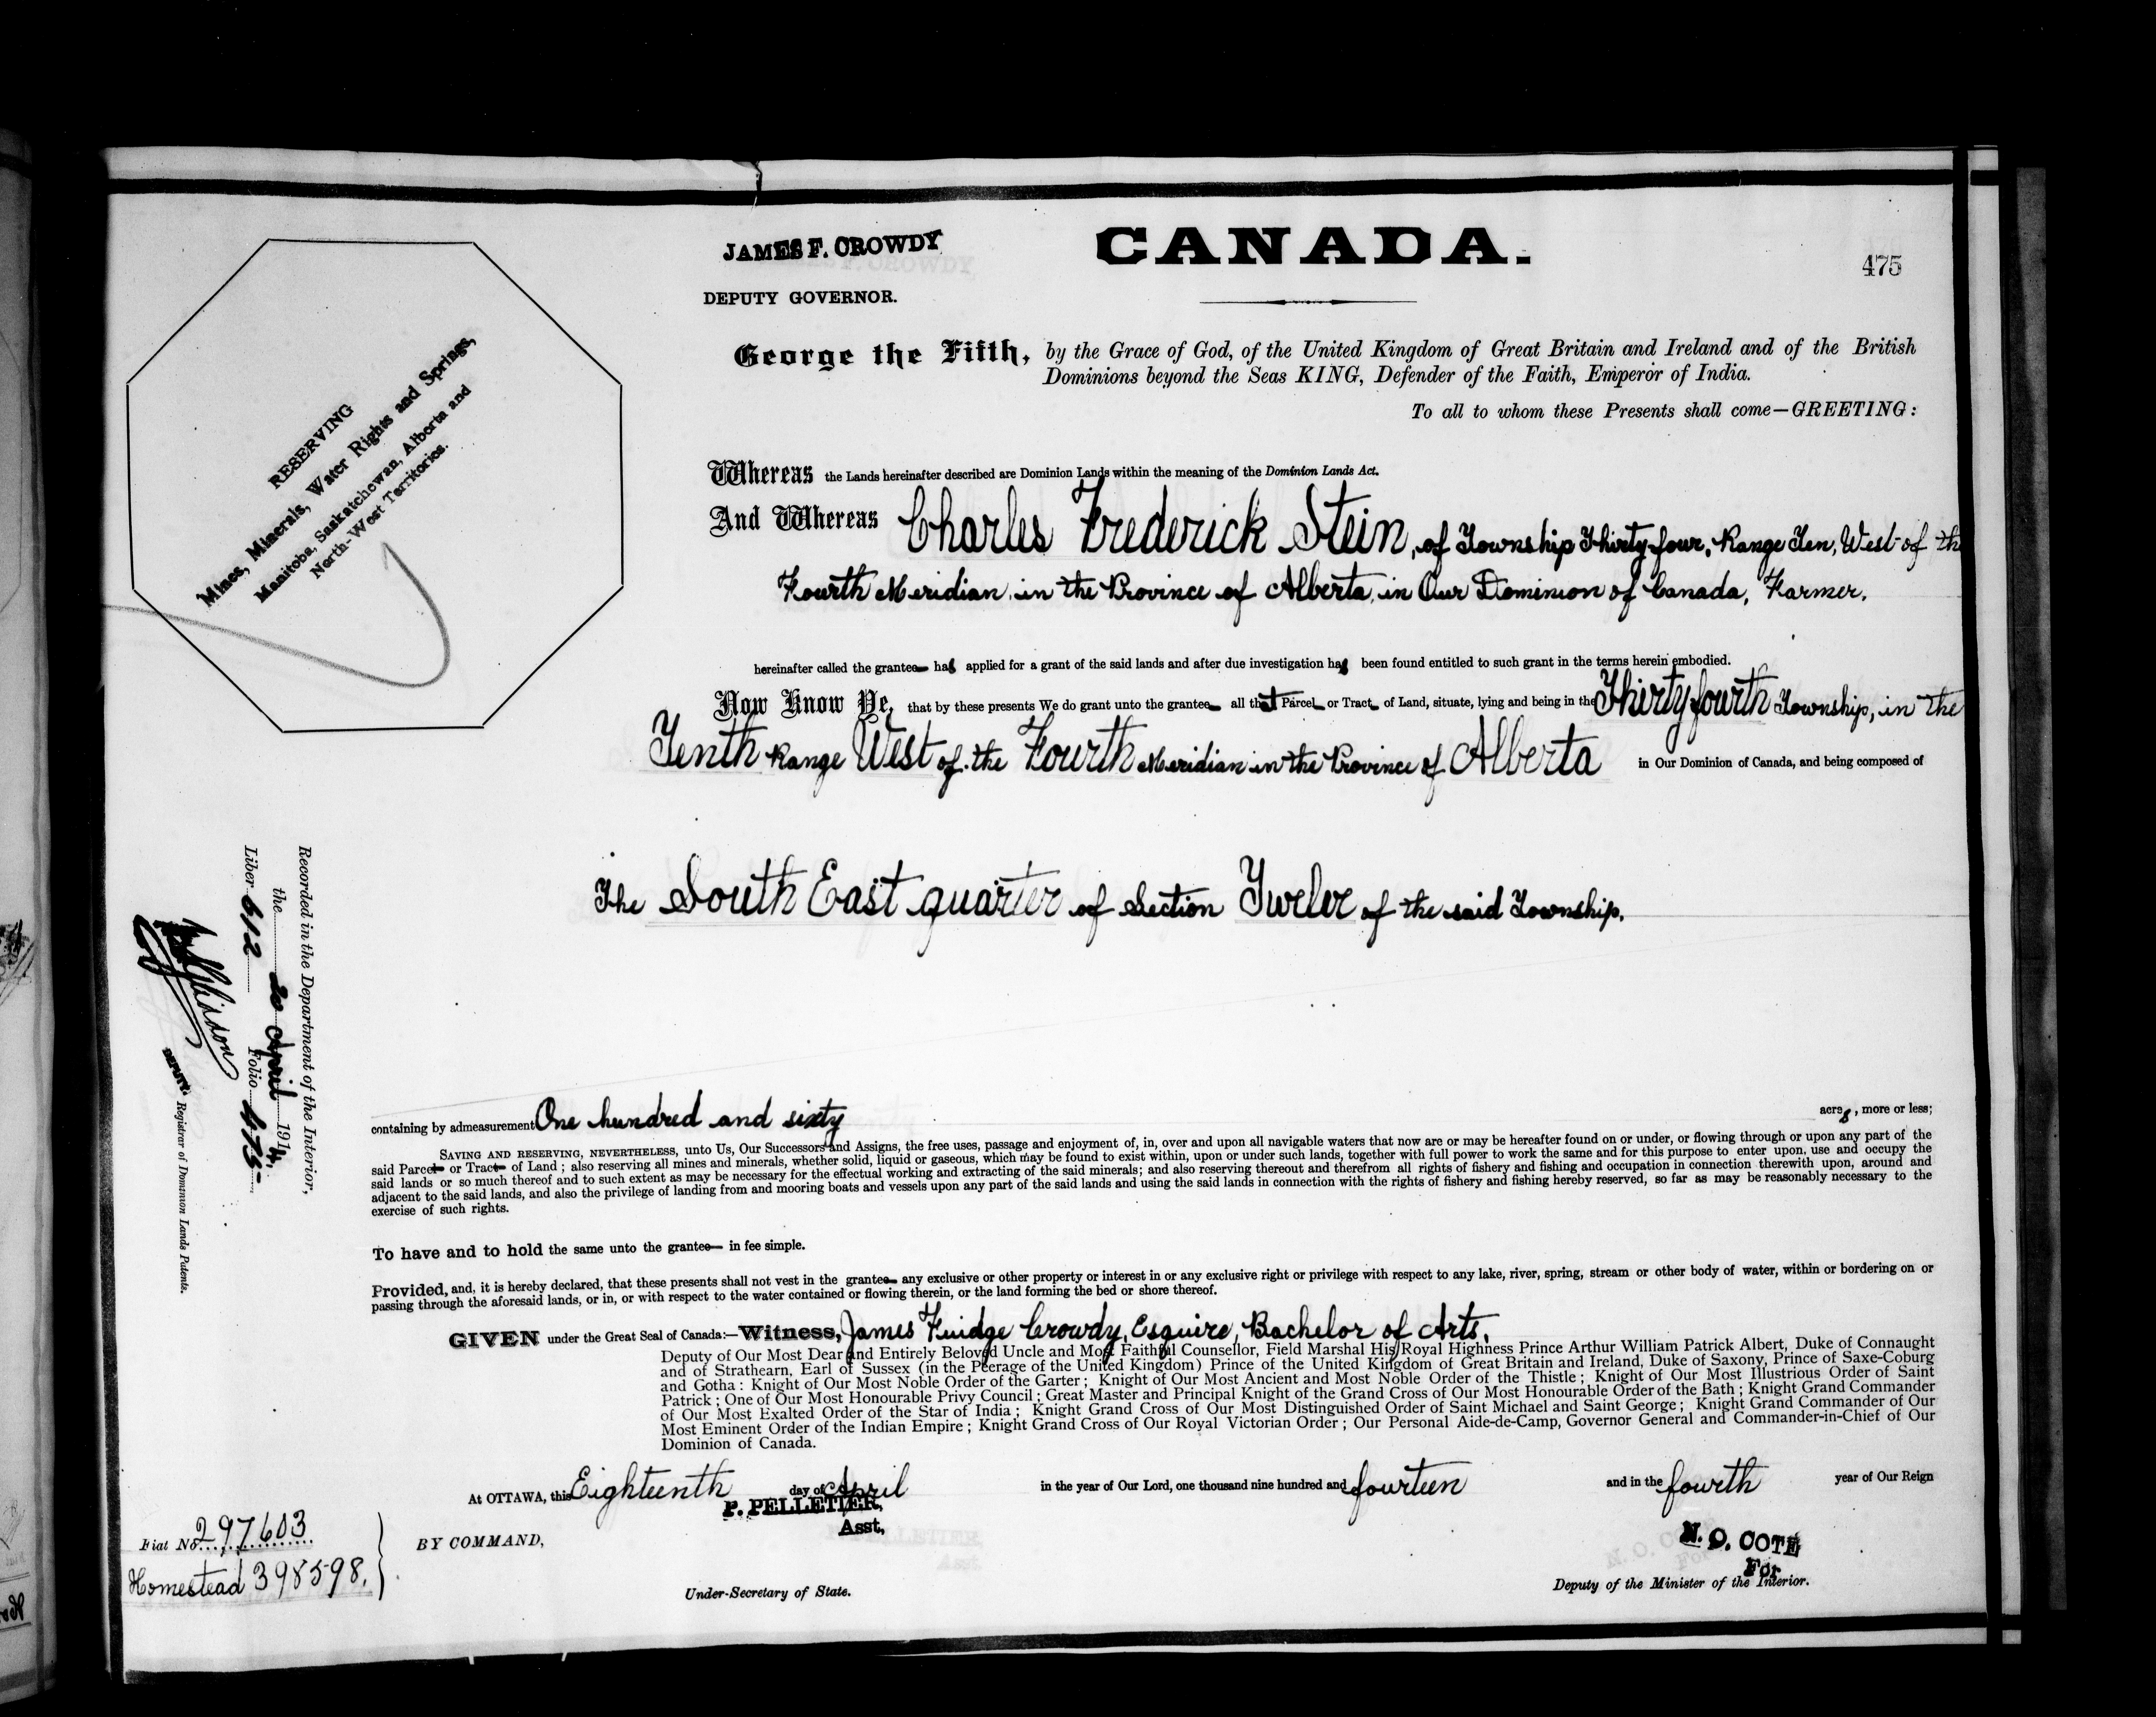 JAMES F. CROWDY
DEPUTY GOVERNOR.
CANADA.
475
RESERVING
Mines, Minerals, Water Rights and Springs,
Manitoba, Saskatchewan, Alberta and
North-West Territories.
George the Fifth, by the Grace of God, of the United Kingdom of Great Britain and Ireland and of the British
Dominions beyond the Seas KING, Defender of the Faith, Emperor of India.
To all to whom these Presents shall come—GREETING:
Whereas the Lands hereinafter described are Dominion Lands within the meaning of the Dominion Lands Act.
And Whereas Charles Frederick Stein, of Township Thirty-four, Range Ten, West of the
Fourth Meridian, in the Province of Alberta, in Our Dominion of Canada, Farmer,
hereinafter called the grantee has applied for a grant of the said lands and after due investigation has been found entitled to such grant in the terms herein embodied.
Now Know Ye, that by these presents We do grant unto the grantee all that Parcel or Tract of Land, situate, lying and being in the Thirty fourth Township, in the
Tenth Range West of the Fourth Meridian in the Province of Alberta in Our Dominion of Canada, and being composed of
The South East quarter of Section Twelve of the said Township.
containing by admeasurement One hundred and sixty acres, more or less;
SAVING AND RESERVING, NEVERTHELESS, unto Us, Our Successors and Assigns, the free uses, passage and enjoyment of, in, over and upon all navigable waters that now are or may be hereafter found on or under, or flowing through or upon any part of the
said Parcel or Tract of Land; also reserving all mines and minerals, whether solid, liquid or gaseous, which may be found to exist within, upon or under such lands, together with full power to work the same and for this purpose to enter upon, use and occupy the
said lands or so much thereof and to such extent as may be necessary for the effectual working and extracting of the said minerals; and also reserving thereout and therefrom all rights of fishery and fishing and occupation in connection therewith upon, around and
adjacent to the said lands, and also the privilege of landing from and mooring boats and vessels upon any part of the said lands and using the said lands in connection with the rights of fishery and fishing hereby reserved, so far as may be reasonably necessary to the
exercise of such rights.
To have and to hold the same unto the grantee in fee simple.
Provided, and, it is hereby declared, that these presents shall not vest in the grantee any exclusive or other property or interest in or any exclusive right or privilege with respect to any lake, river, spring, stream or other body of water, within or bordering on or
passing through the aforesaid lands, or in, or with respect to the water contained or flowing therein, or the land forming the bed or shore thereof.
GIVEN under the Great Seal of Canada:—Witness, James Fuidge Crowdy, Esquire, Bachelor of Arts,
Deputy of Our Most Dear and Entirely Beloved Uncle and Most Faithful Counsellor, Field Marshal His Royal Highness Prince Arthur William Patrick Albert, Duke of Connaught
and of Strathearn, Earl of Sussex (in the Peerage of the United Kingdom) Prince of the United Kingdom of Great Britain and Ireland, Duke of Saxony, Prince of Saxe-Coburg
and Gotha: Knight of Our Most Noble Order of the Garter; Knight of Our Most Ancient and Most Noble Order of the Thistle; Knight of Our Most Illustrious Order of Saint
Patrick; One of Our Most Honourable Privy Council; Great Master and Principal Knight of the Grand Cross of Our Most Honourable Order of the Bath; Knight Grand Commander
of Our Most Exalted Order of the Star of India; Knight Grand Cross of Our Most Distinguished Order of Saint Michael and Saint George; Knight Grand Commander of Our
Most Eminent Order of the Indian Empire; Knight Grand Cross of Our Royal Victorian Order; Our Personal Aide-de-Camp, Governor General and Commander-in-Chief of Our
Dominion of Canada.
At OTTAWA, this Eighteenth day of April in the year of Our Lord, one thousand nine hundred and fourteen and in the fourth year of Our Reign
P. PELLETIER,
Asst,
BY COMMAND,
Under-Secretary of State.
N. O. COTE
For
Deputy of the Minister of the Interior.
Fiat No. 297603
Homestead 398598.
Recorded in the Department of the Interior,
the 20 April 1914.
Liber 612 Folio 475
DEPUTY Registrar of Dominion Lands Patents.